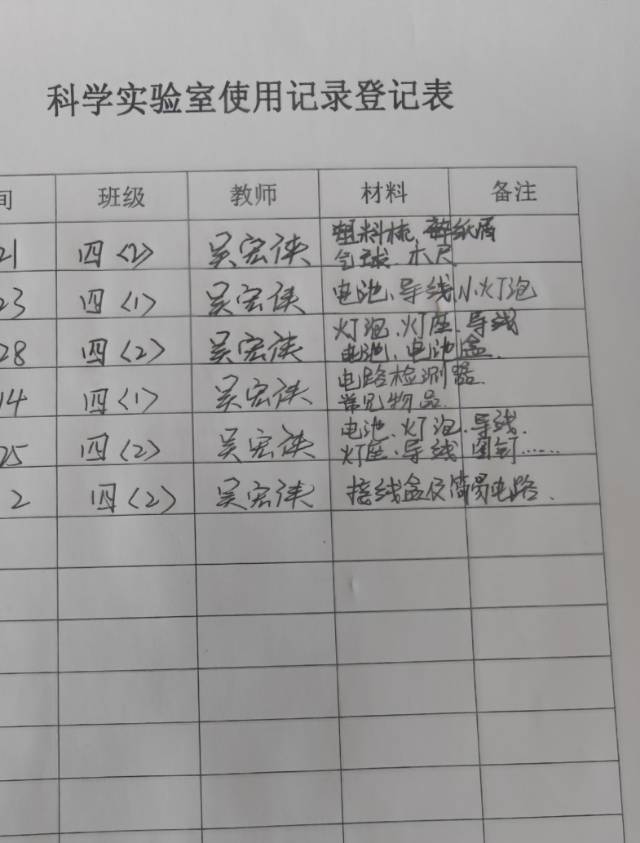 科学实验室使用记录登记表
间 班级 教师 材料 备注
21 四(2) 吴宏侠 塑料梳、碎纸屑
气球、木尺
23 四(1) 吴宏侠 电池、导线、小灯泡
28 四(2) 吴宏侠 灯泡、灯座、导线
电池、电池盒.
14 四(1) 吴宏侠 电路检测器
常见物品.
25 四(2) 吴宏侠 电池、灯泡、导线.
灯座、导线 图钉……
2 四(2) 吴宏侠 接线盒及简易电路.